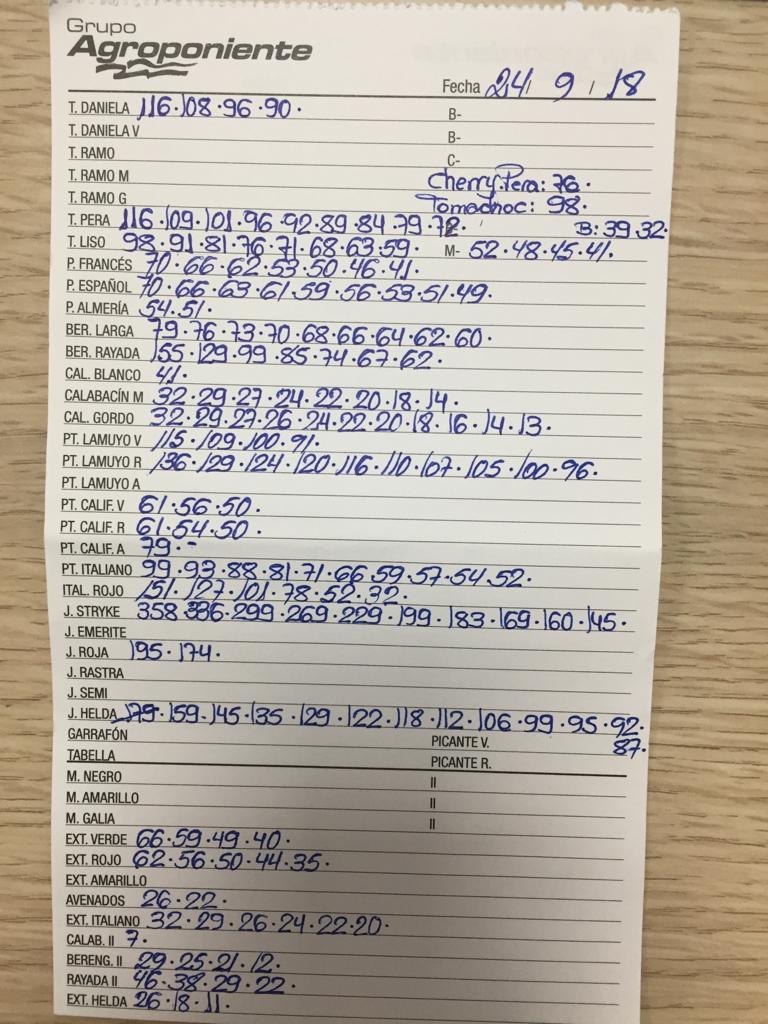 Grupo
Agroponiente
Fecha 24/ 9 / 18
T. DANIELA 116·108·96·90· B-
T. DANIELA V B-
T. RAMO C-
T. RAMO M Cherry Pera: 76·
T. RAMO G Tomachoc: 98·
T. PERA 116·109·101·96·92·89·84·79·72· B: 39 32·
T. LISO 98·91·81·76·71·68·63·59· M- 52·48·45·41·
P. FRANCÉS 70·66·62·53·50·46·41·
P. ESPAÑOL 70·66·63·61·59·56·53·51·49·
P. ALMERÍA 54·51·
BER. LARGA 79·76·73·70·68·66·64·62·60·
BER. RAYADA 155·129·99·85·74·67·62·
CAL. BLANCO 41·
CALABACÍN M 32·29·27·24·22·20·18·14·
CAL. GORDO 32·29·27·26·24·22·20·18·16·14·13·
PT. LAMUYO V 115·109·100·91·
PT. LAMUYO R 136·129·124·120·116·110·107·105·100·96·
PT. LAMUYO A
PT. CALIF. V 61·56·50·
PT. CALIF. R 61·54·50·
PT. CALIF. A 79·-
PT. ITALIANO 99·93·88·81·71·66·59·57·54·52·
ITAL. ROJO 151·127·101·78·52·32·
J. STRYKE 358·336·299·269·229·199·183·169·160·145·
J. EMERITE
J. ROJA 195·174·
J. RASTRA
J. SEMI
J. HELDA 179·159·145·135·129·122·118·112·106·99·95·92·
GARRAFÓN PICANTE V. 87·
TABELLA PICANTE R.
M. NEGRO II
M. AMARILLO II
M. GALIA II
EXT. VERDE 66·59·49·40·
EXT. ROJO 62·56·50·44·35·
EXT. AMARILLO
AVENADOS 26·22·
EXT. ITALIANO 32·29·26·24·22·20·
CALAB. II 7·
BERENG. II 29·25·21·12·
RAYADA II 46·38·29·22·
EXT. HELDA 26·18·11·